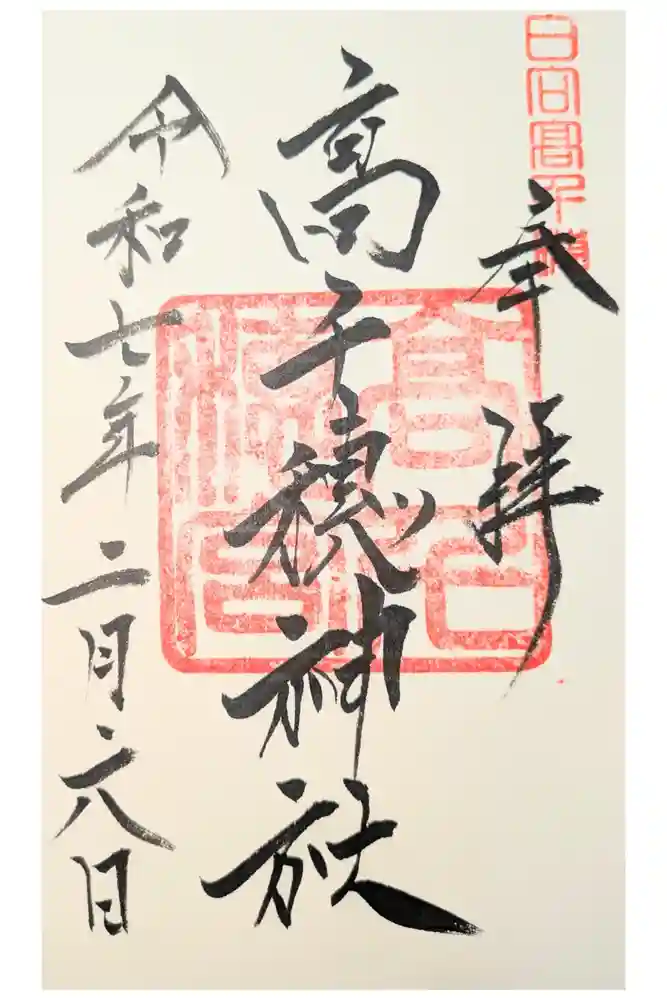 日向高千穂
奉拝
高千穂神社
令和七年二月六日